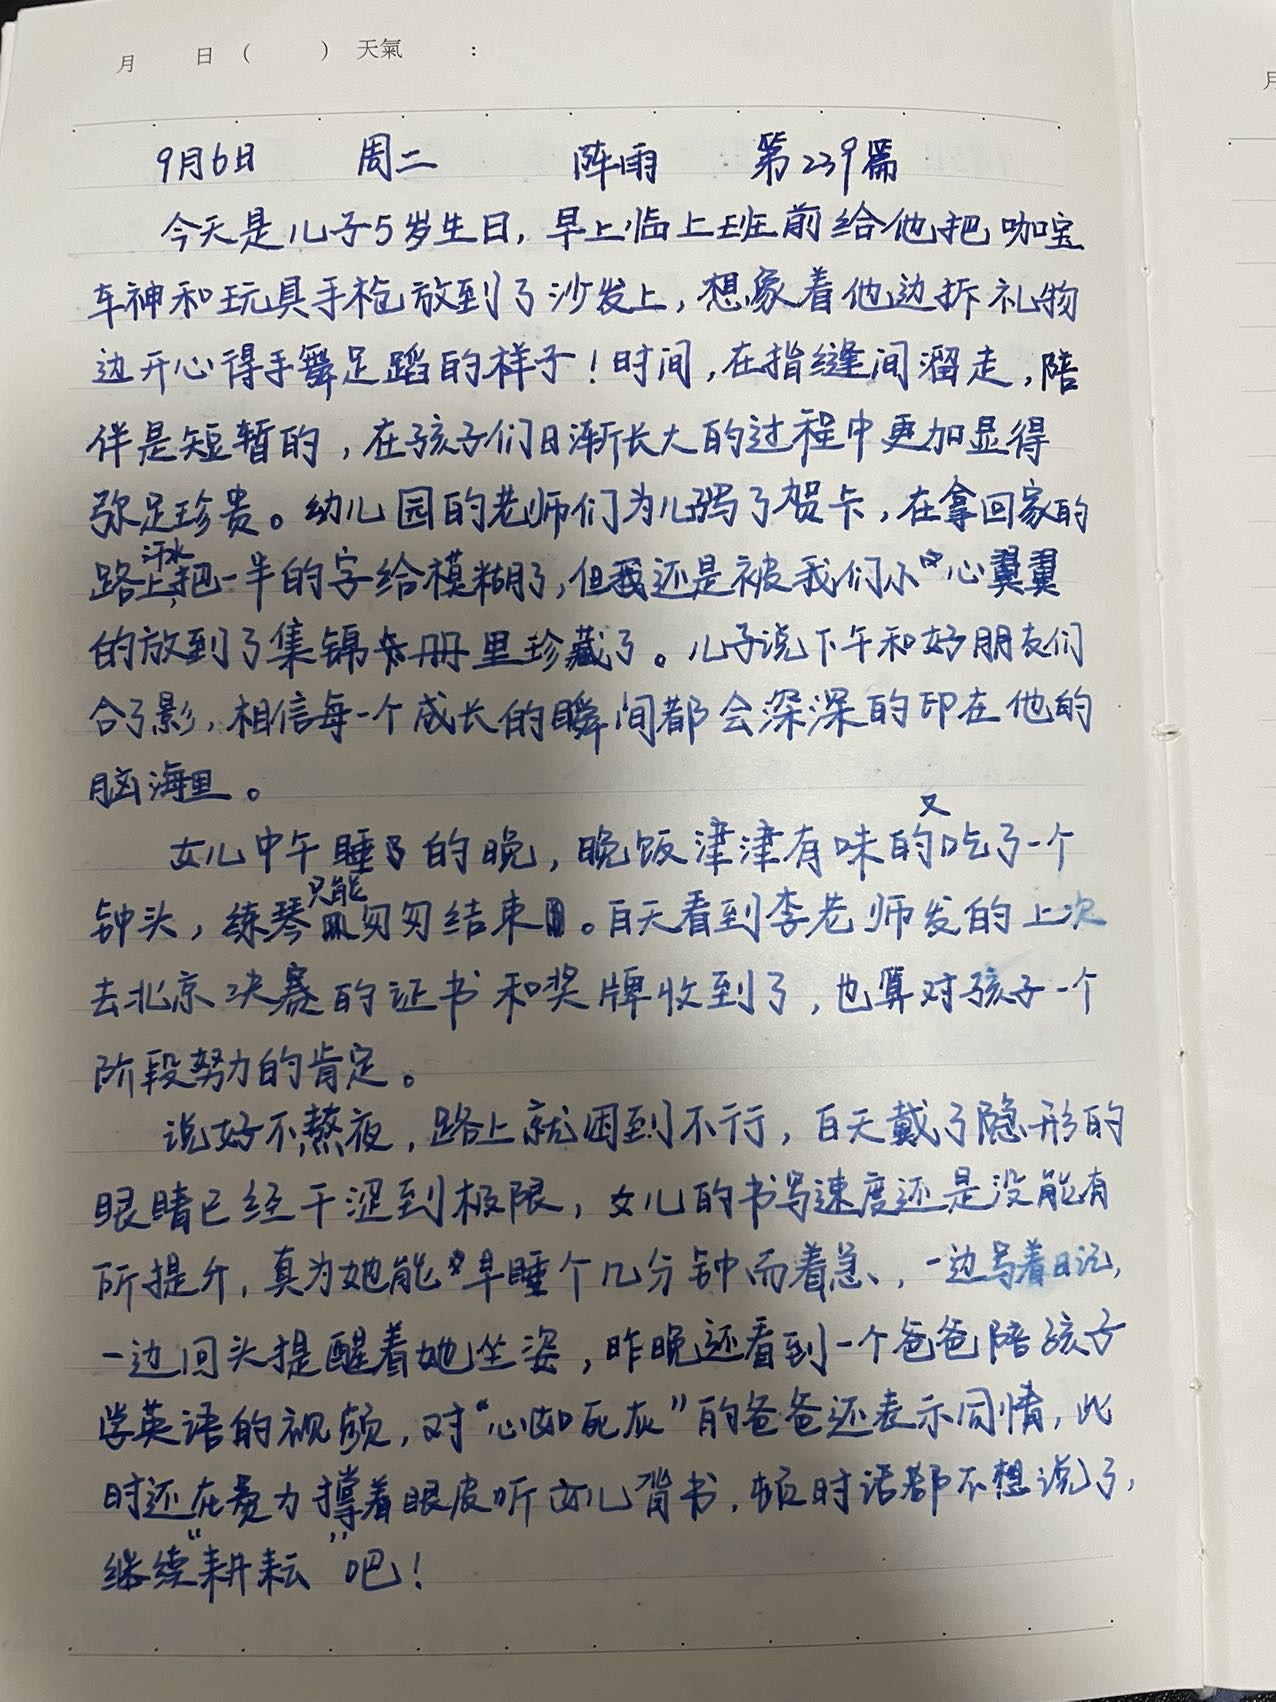 月 日 ( ) 天氣 :
月
9月6日 周二 阵雨 第239篇
今天是儿子5岁生日,早上临上班前给他把咖宝
车神和玩具手枪放到了沙发上,想象着他边拆礼物
边开心得手舞足蹈的样子!时间,在指缝间溜走,陪
伴是短暂的,在孩子们日渐长大的过程中更加显得
弥足珍贵。幼儿园的老师们为儿子写了贺卡,在拿回家的
路上,汗水把一半的字给模糊了,但我还是被我们小心翼翼
的放到了集锦册里珍藏了。儿子说下午和好朋友们
合了影,相信每一个成长的瞬间都会深深的印在他的
脑海里。
女儿中午睡了的晚,晚饭津津有味的又吃了一个
钟头,练琴只能匆匆结束。白天看到李老师发的上次
去北京决赛的证书和奖牌收到了,也算对孩子一个
阶段努力的肯定。
说好不熬夜,路上就困到不行,白天戴了隐形的
眼睛已经干涩到极限,女儿的书写速度还是没能有
所提升,真为她能早睡个几分钟而着急、,一边写着日记,
一边回头提醒着她坐姿,昨晚还看到一个爸爸陪孩子
学英语的视频,对“心如死灰”的爸爸还表示同情,此
时还在费力撑着眼皮听女儿背书,顿时话都不想说了,
继续“耕耘”吧!